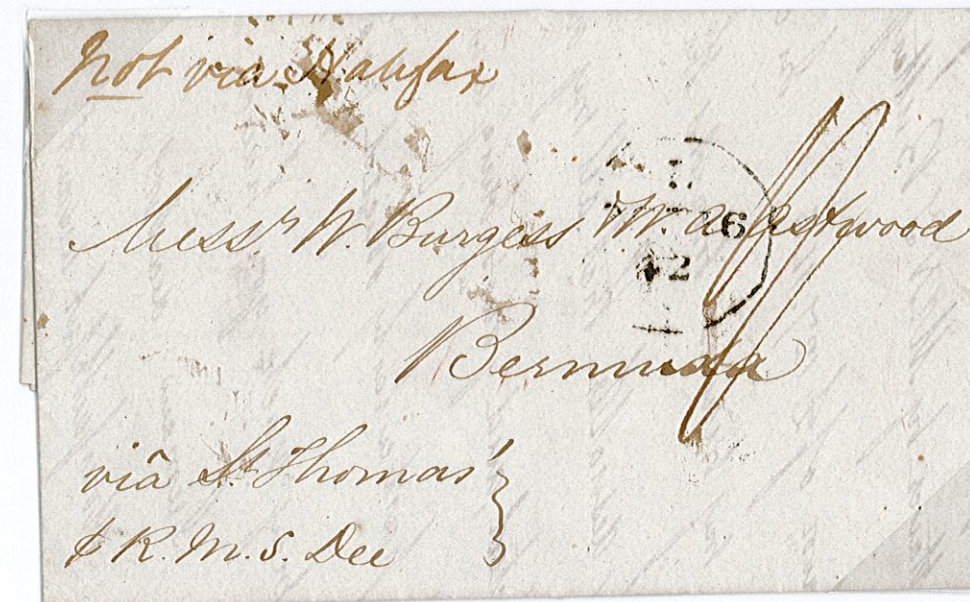 Not via Halifax
Messrs W. Burgess W. Astwood
Bermuda
viâ St. Thomas'
R. M. S. Dee
L
26
42